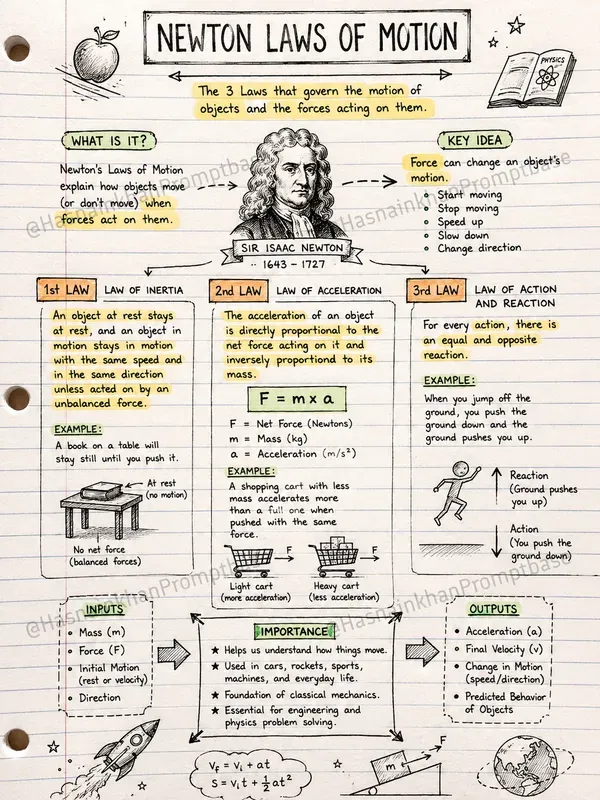 NEWTON LAWS OF MOTION
PHYSICS
The 3 Laws that govern the motion of
objects and the forces acting on them.
WHAT IS IT?
Newton's Laws of Motion
explain how objects move
(or don't move) when
forces act on them.
KEY IDEA
Force can change an object's
motion.
Start moving
Stop moving
Speed up
Slow down
Change direction
@HasnainkhanPromptbase
@HasnainkhanPromptbase
SIR ISAAC NEWTON
1643 - 1727
1st LAW LAW OF INERTIA
An object at rest stays
at rest, and an object in
motion stays in motion
with the same speed and
in the same direction
unless acted on by an
unbalanced force.
EXAMPLE:
A book on a table will
stay still until you push it.
At rest
(no motion)
No net force
(balanced forces)
2nd LAW LAW OF ACCELERATION
The acceleration of an object
is directly proportional to the
net force acting on it and
inversely proportiond to its
mass.
F = m x a
F = Net Force (Newtons)
m = Mass (kg)
a = Acceleration (m/s²)
EXAMPLE:
A shopping cart with less
mass accelerates more
than a full one when
pushed with the same
force.
F
F
Light cart
(more acceleration)
Heavy cart
(less acceleration)
3rd LAW LAW OF ACTION
AND REACTION
For every action, there is
an equal and opposite
reaction.
EXAMPLE:
When you jump off the
ground, you push the
ground down and the
ground pushes you up.
Reaction
(Ground pushes
you up)
Action
(You push the
ground down)
@HasnainkhanPromptbase
@HasnainkhanPromptbase
INPUTS
Mass (m)
Force (F)
Initial Motion
(rest or velocity)
Direction
IMPORTANCE
★ Helps us understand how things move.
★ Used in cars, rockets, sports,
machines, and everyday life.
★ Foundation of classical mechanics.
★ Essential for engineering and
physics problem solving.
OUTPUTS
Acceleration (a)
Final Velocity (v)
Change in Motion
(speed/direction)
Predicted Behavior
of Objects
v_f = v_i + at
S = v_i t + ½ at²
m
F